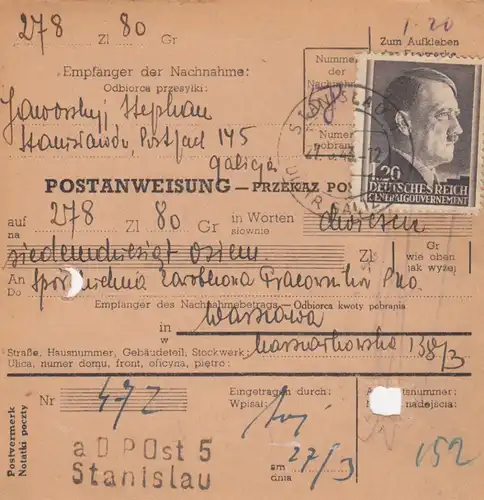 278 Zl 80 Gr
1.20
Zum Aufkleben
Empfänger der Nachnahme:
Odbiorca przesyłki:
Nummer
der
Jaworskyj Stephan
Stanislawów, Postfach 145
Galicja
Numer
pobran
STANISLAU
27.3.43-12
1.20
DEUTSCHES REICH
GENERALGOUVERNEMENT
POSTANWEISUNG — PRZEKAZ POS
auf 278 Zl 80 Gr in Worten dwieście
na słownie
siedemdziesiąt osiem Zl Gr
wie oben
jak wyżej
An Spółdzielnia Zarobkowa Pracowników
Do
Empfänger des Nachnahmebetrags — Odbiorca kwoty pobrania
in Warszawa
w
Straße, Hausnummer, Gebäudeteil, Stockwerk: Marszałkowska 138/3
Ulica, numer domu, front, oficyna, piętro:
Postvermerk
Notatki poczty
Nr 472
Eingetragen durch:
Wpisał:
nummer:
nadejścia:
aDPOst 5
Stanislau
am 27/3
dnia
152